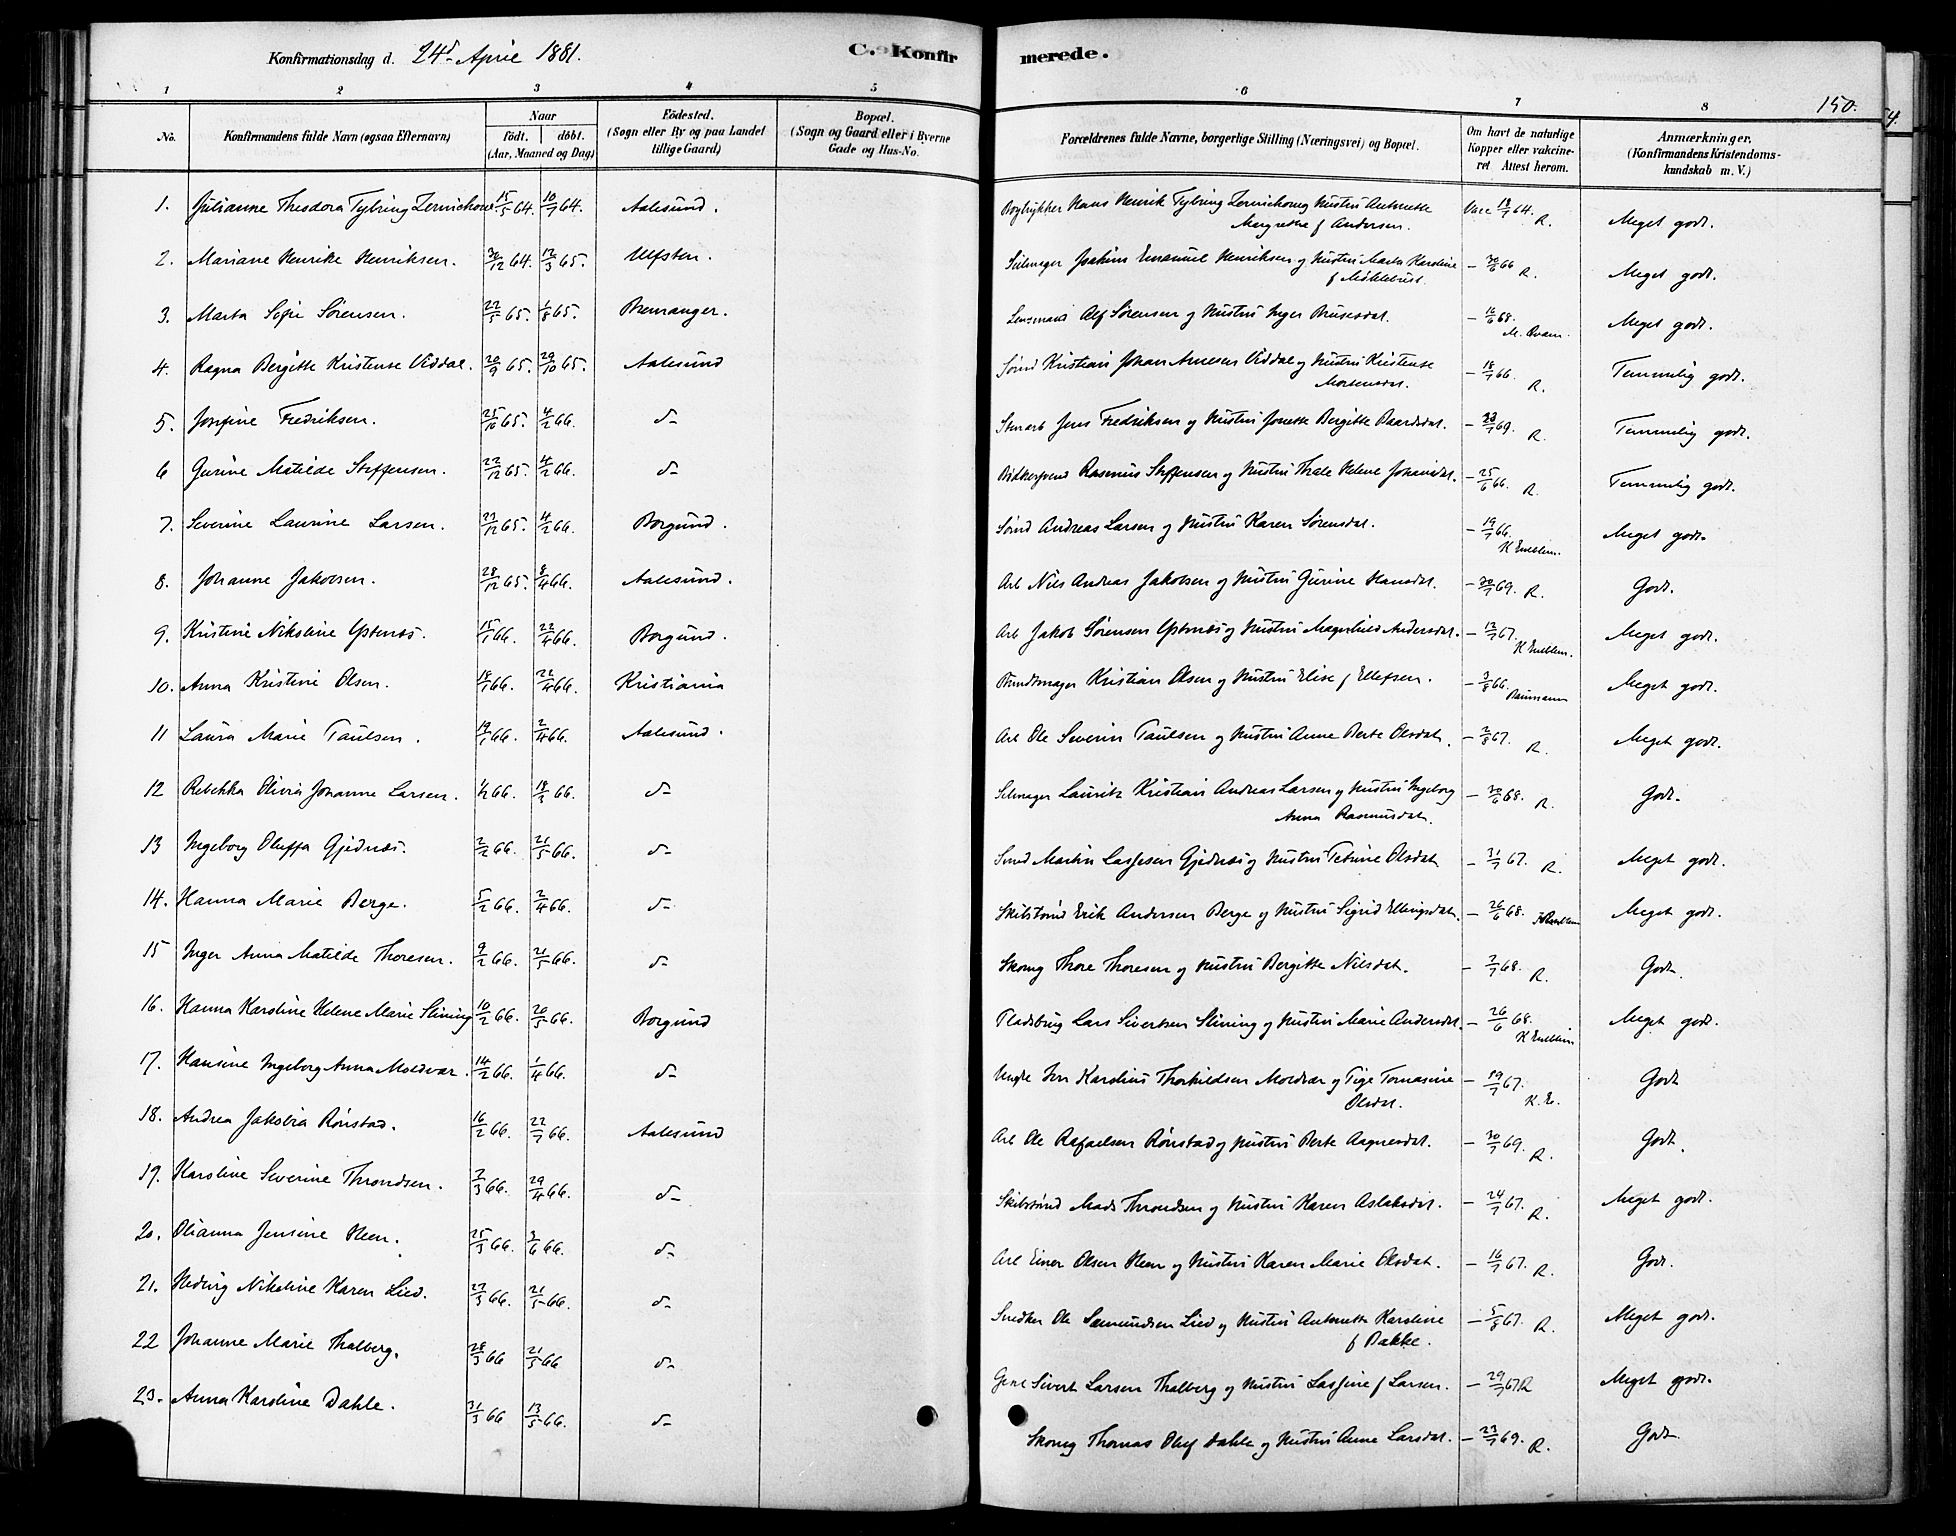 Konfirmationsdag d. 24d April 1881.
C. Konfirmerede.
150.
1 2 3 4 5 6 7 8
No.
Konfirmandens fulde Navn (ogsaa Efternavn)
Naar
födt. döbt.
(Aar, Maaned og Dag)
Födested.
(Sogn eller By og paa Landet
tillige Gaard)
Bopæl.
(Sogn og Gaard eller i Byerne
Gade og Hus-No.
Forældrenes fulde Navne, borgerlige Stilling (Næringsvei) og Bopæl.
Om havt de naturlige
Kopper eller vakcine-
ret Attest herom.
Anmærkninger,
(Konfirmandens Kristendoms-
kundskab m. V.)
1. Julianne Theodora Tybring 15/5 64. 10/7 64. Aalesund. Bogtrykker Hans Henrik Tybring og Hustru Antonette Vacc 18/7 64. R. Meget godt.
Margrethe f Andersen.
2. Mariane Henrike Henriksen. 30/12 64. 12/3 65. Ulfsten. Seilmager Joakim Emanuel Henriksen og Hustru Marta Karoline – 30/6 66 R. Meget godt.
f Möklebust.
3. Marta Sofie Sørensen. 22/5 65. 1/8 65. Bremanger. Lensmand Alf Sørensen og Hustru Inger – 16/6 68. Meget godt.
4. Ragna Bergitte Kristense Viddal. 20/9 65. 29/10 65. Aalesund Kristian Johan Arnesen Viddal og Hustru Kristense – 18/7 66. R. Temmelig godt.
Mortensdat.
5. Josefine Fredriksen. 25/10 65. 4/2 66. d– Jens Fredriksen og Hustru Jonette Bergitte Baardsdat. – 69. R. Temmelig godt.
6 Gurine Matilde Steffensen. 22/12 65. 4/2 66. d– Rasmus Steffensen og Hustru Thale Helene Johansdat. – 25/6 66. R. Temmelig godt.
7. Severine Laurine Larsen. 23/12 65. 4/2 66. Borgund. Andreas Larsen og Hustru Karen Sørensdat. – 19/7 66. K Emblem. Meget godt.
8. Johanne Jakobsen. 28/12 65. 8/4 66. Aalesund. Arb Nils Andreas Jakobsen og Hustru Gurine Hansdat. – 30/7 69. R. Godt.
9. Kristine Nikoline Ystenæs. 15/1 66. 22/4 66. Borgund. Arb Jakob Sørensen Ystenæs og Hustru Magnhild Andersdat. – 13/7 67. K Emblem. Meget godt.
10. Anna Kristine Olsen. 18/1 66. 22/4 66. Kristiania Buntmager Kristian Olsen og Hustru Elise f Ellefsen. – 3/8 66. Meget godt.
11 Laura Marie Paulsen. 19/1 66. 2/4 66. Aalesund. Arb Ole Severin Paulsen og Hustru Anne Berte Olsdat. – 2/8 67. R. Meget godt.
12 Rebekka Olivia Johanne Larsen. 1/2 66. 18/3 66. d– Seilmager Lauritz Kristian Andreas Larsen og Hustru Ingeborg – 30/6 68. R. Godt.
Anna Rasmusdat.
13 Ingeborg Oluffa Gjednæs. 2/2 66. 21/5 66. d– Smed Martin Lassesen Gjednæs og Hustru Petrine Olsdat – 31/7 67. R. Meget godt.
14. Hanna Marie Berge. 5/2 66. 2/4 66. d– Skibstømd Erik Andersen Berge og Hustru Sigrid Ellingsdat. – 26/6 68. Meget godt.
15 Inger Anna Matilde Thoresen. 9/2 66. 21/5 66. d– Skomg Thore Thoresen og Hustru Bergitte Nilsdat. – 2/7 68. R. Godt.
16. Hanna Karoline Helene Marie Slining 10/2 66. 20/5 66. Borgund Pladsbrug Lars Sivertsen Slining og Hustru Marie Andersdat. – 26/6 68. K Emblem Meget godt.
17. Hansine Ingeborg Anna Moldvær. 14/2 66. 1/4 66. d– Ungkr Iver Karolius Thorkildsen Moldvær og Pige Tomasine – 19/7 67. K. E. Godt
Olsdat.
18. Andrea Jakobia Rønstad. 16/2 66. 22/7 66. Aalesund Arb Ole Rafaelsen Rønstad og Hustru Berte Aagesdat. – 30/7 69. R. Godt.
19. Karoline Severine Throndsen. 2/3 66. 29/4 66. d– Skibstømd Mads Throndsen og Hustru Karen Aslaksdat. – 24/7 67. R. Meget godt.
20. Olianna Jensine Heen. 25/3 66. 3/6 66. d– Arb Einer Olsen Heen og Hustru Karen Marie Olsdat. – 16/7 67. R. Godt.
21. Hedvig Nikoline Karen Lied. 27/3 66. 21/5 66. d– Snedker Ole Samundsen Lied og Hustru Antonette Karoline – 5/8 67. R. Meget godt.
f Bakke.
22 Johanne Marie Thalberg. 28/3 66 21/5 66 d– Sivert Larsen Thalberg og Hustru Lassine f Larsen. – 29/7 67 R Meget godt.
23. Anna Karoline Dahle. 31/3 66 13/5 66. d– Skomg Thomas Oluf Dahle og Hustru Anne Larsdat. – 23/7 69. R. Godt